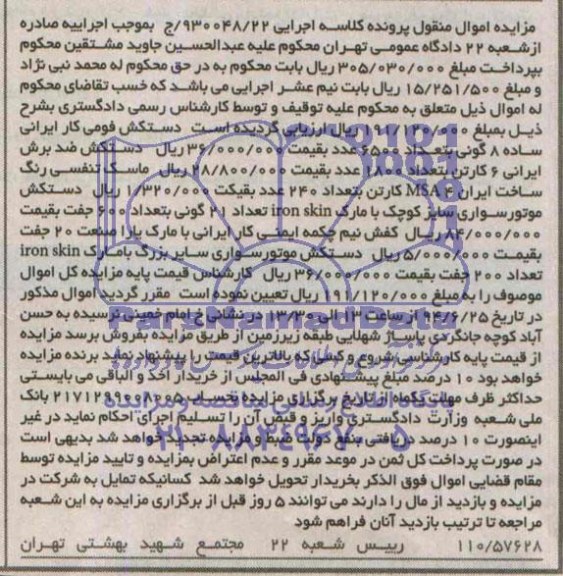 مزایده اموال منقول پرونده کلاسه اجرایی ۹۳۰۰۴۸/۲۲/ج بموجب اجراییه صادره
ازشعبه ۲۲ دادگاه عمومی تهران محکوم علیه عبدالحسین جاوید مشتقین محکوم
بپرداخت مبلغ ۳۰۵/۰۳۰/۰۰۰ ریال بابت محکوم به در حق محکوم له محمد نبی نژاد
و مبلغ ۱۵/۲۵۱/۵۰۰ ریال بابت نیم عشر اجرایی می باشد که حسب تقاضای محکوم
له اموال ذیل متعلق به محکوم علیه توقیف و توسط کارشناس رسمی دادگستری بشرح
ذیل بمبلغ ۱۹۱/۱۲۰/۰۰۰ ریال ارزیابی گردیده است دستکش فومی کار ایرانی
ساده ۸ گونی بتعداد ۶۵۰۰ عدد بقیمت ۳۶/۰۰۰/۰۰۰ ریال دستکش ضد برش
ایرانی ۶ کارتن بتعداد ۱۸۰۰ عدد بقیمت ۲۸/۸۰۰/۰۰۰ ریال ماسک تنفسی رنگ
ساخت ایران MSA ۲ کارتن بتعداد ۲۴۰ عدد بقیکت ۱/۳۲۰/۰۰۰ ریال دستکش
موتورسواری سایز کوچک با مارک iron skin تعداد ۲۱ گونی بتعداد ۶۰۰ جفت بقیمت
۸۴/۰۰۰/۰۰۰ ریال کفش نیم چکمه ایمنی کار ایرانی با مارک یارا صنعت ۲۰ جفت
بقیمت ۵/۰۰۰/۰۰۰ ریال دستکش موتورسواری سایز بزرگ بامارک iron skin
تعداد ۲۰۰ جفت بقیمت ۳۶/۰۰۰/۰۰۰ ریال کارشناس قیمت پایه مزایده کل اموال
موصوف را به مبلغ ۱۹۱/۱۲۰/۰۰۰ ریال تعیین نموده است مقرر گردید اموال مذکور
در تاریخ ۹۴/۶/۲۵ از ساعت ۱۳ الی ۱۳/۳۰ در نشانی خ امام خمینی نرسیده به حسن
آباد کوچه جانگردی پاساژ شهلایی طبقه زیرزمین از طریق مزایده بفروش برسد مزایده
از قیمت پایه کارشناسی شروع و کسی که بالاترین قیمت را پیشنهاد نماید برنده مزایده
خواهد بود ۱۰ درصد مبلغ پیشنهادی فی المجلس از خریدار اخذ و الباقی می بایستی
حداکثر ظرف مهلت یکماه از تاریخ برگزاری مزایده بحساب بانک
ملی شعبه وزارت دادگستری واریز و قبض آن را تسلیم اجرای احکام نماید در غیر
اینصورت ۱۰ درصد دریافتی بنفع دولت ضبط و مزایده تجدید خواهد شد بدیهی است
در صورت پرداخت کل ثمن در موعد مقرر و عدم اعتراض بمزایده و تایید مزایده توسط
مقام قضایی اموال فوق الذکر بخریدار تحویل خواهد شد کسانیکه تمایل به شرکت در
مزایده و بازدید از مال را دارند می توانند ۵ روز قبل از برگزاری مزایده به این شعبه
مراجعه تا ترتیب بازدید آنان فراهم شود
۱۱۰/۵۷۶۲۸ رییس شعبه ۲۲ مجتمع شهید بهشتی تهران
ParsNamadData